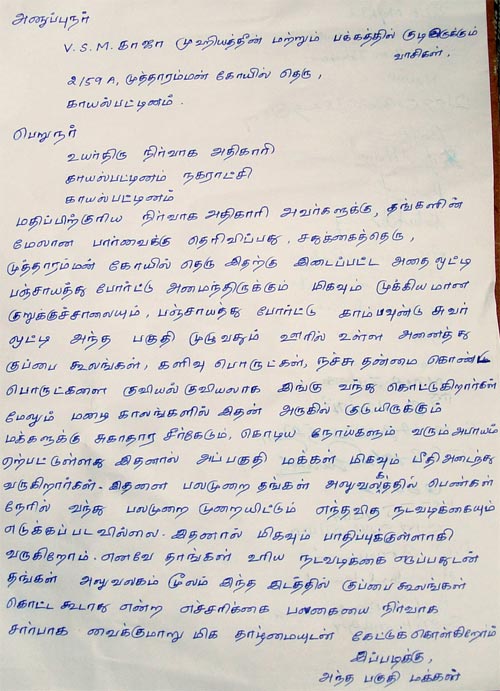 அனுப்புநர்
V.S.M. காஜா முஹியத்தீன் மற்றும் பக்கத்தில் குடியிருக்கும்
வாசிகள்,
2/59 A, முத்தாரம்மன் கோயில் தெரு,
காயல்பட்டினம்.
பெறுநர்
உயர்திரு நிர்வாக அதிகாரி
காயல்பட்டினம் நகராட்சி
காயல்பட்டினம்
மதிப்பிற்குரிய நிர்வாக அதிகாரி அவர்களுக்கு, தங்களின்
மேலான பார்வைக்கு தெரிவிப்பது, சதுக்கைத்தெரு,
முத்தாரம்மன் கோயில் தெரு இதற்கு இடைப்பட்ட அதை ஒட்டி
பஞ்சாயத்து போர்ட்டு அமைந்திருக்கும் மிகவும் முக்கியமான
குறுக்குச்சாலையும், பஞ்சாயத்து போர்ட்டு காம்பவுண்டு சுவர்
ஒட்டி அந்த பகுதி முழுவதும் ஊரில் உள்ள அனைத்து
குப்பை கூலங்கள், களிவு பொருட்கள், நச்சு தன்மை கொண்ட
பொருட்களை குவியல்குவியலாக இங்கு வந்து கொட்டுகிறார்கள்
மேலும் மழை காலங்களில் இதன் அருகில் குடியிருக்கும்
மக்களுக்கு சுகாதார சீர்கேடும், கொடிய நோய்களும் வரும் அபாயம்
ஏற்பட்டுள்ளது இதனால் அப்பகுதி மக்கள் மிகவும் பீதி அடைந்து
வருகிறார்கள். இதனை பலமுறை தங்கள் அலுவலகத்தில் பெண்கள்
நேரில் வந்து பலமுறை முறையிட்டும் எந்தவித நடவடிக்கையும்
எடுக்கப்படவில்லை. இதனால் மிகவும் பாதிப்புக்குள்ளாகி
வருகிறோம். எனவே தாங்கள் உரிய நடவடிக்கை எடுப்பதுடன்
தங்கள் அலுவலகம் மூலம் இந்த இடத்தில் குப்பை கூலங்கள்
கொட்ட கூடாது என்ற எச்சரிக்கை பலகையை நிர்வாக
சார்பாக வைக்குமாறு மிக தாழ்மையுடன் கேட்டுக்கொள்கிறோம்
இப்படிக்கு,
அந்த பகுதி மக்கள்